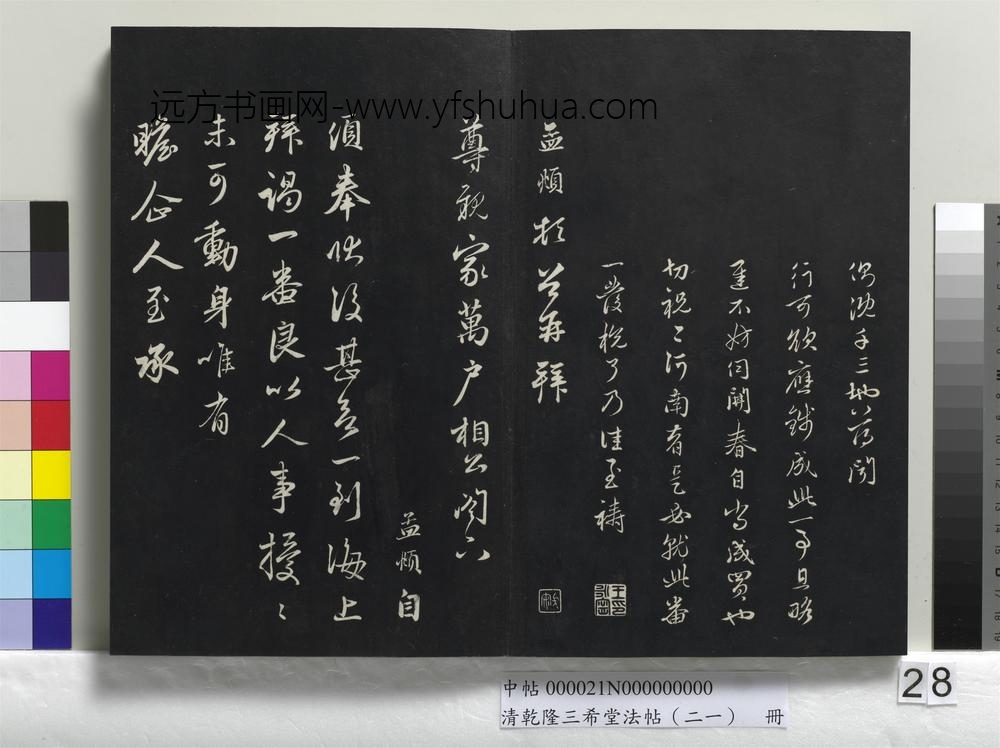 远方书画网-www.yfshuhua.com
沈千三地
行可欲應錢成此一事且略
遲不妨伺開春自當成買也
切祝〻河南是必就此番
一發了乃佳至禱
孟頫頓首再拜
尊親家萬戶相公閤下
孟頫自
奉狀後甚欲一到海上
拜謁一番良以人事擾〻
未可動身唯有
瞻企人至承
中帖 000021N000000000
清乾隆三希堂法帖（二一） 冊
28